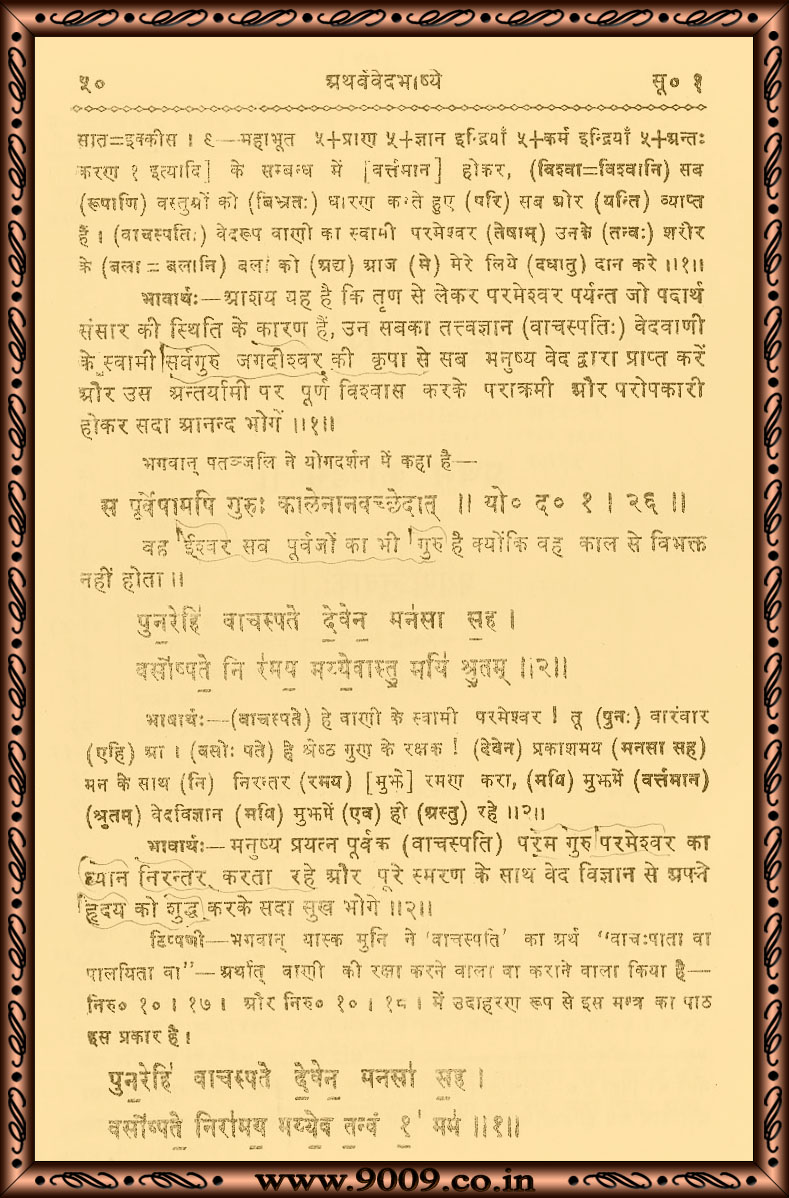 ५० अथर्ववेदभाष्ये सू० १
सात=इक्कीस । ६—महाभूत ५+प्राण ५+ज्ञान इन्द्रियाँ ५+कर्म इन्द्रियाँ ५+अन्तः
करण १ इत्यादि] के सम्बन्ध में [वर्त्तमान] होकर, (विश्वा=विश्वानि) सब
(रूपाणि) वस्तुओं को (बिभ्रतः) धारण करते हुए (परि) सब ओर (यन्ति) व्याप्त
हैं । (वाचस्पतिः) वेदरूप वाणी का स्वामी परमेश्वर (तेषाम्) उनके (तन्वः) शरीर
के (बला = बलानि) बलों को (अद्य) आज (मे) मेरे लिये (दधातु) दान करे ॥१॥
भावार्थः—आशय यह है कि तृण से लेकर परमेश्वर पर्यन्त जो पदार्थ
संसार की स्थिति के कारण हैं, उन सबका तत्त्वज्ञान (वाचस्पतिः) वेदवाणी
के स्वामी सर्वगुरु जगदीश्वर की कृपा से सब मनुष्य वेद द्वारा प्राप्त करें
और उस अन्तर्यामी पर पूर्ण विश्वास करके पराक्रमी और परोपकारी
होकर सदा आनन्द भोगें ॥१॥
भगवान् पतञ्जलि ने योगदर्शन में कहा है—
स पूर्वेषामपि गुरुः कालेनानवच्छेदात् ॥ यो० द० १ । २६ ॥
वह ईश्वर सब पूर्वजों का भी गुरु है क्योंकि वह काल से विभक्त
नहीं होता ॥
पुन॒रेहि॑ वाचस्पते दे॒वेन॒ मन॑सा स॒ह ।
वसो॑ष्पते॒ नि र॑मय॒ मय्ये॒वास्तु॒ मयि॑ श्रु॒तम् ॥२॥
भाषार्थः—(वाचस्पते) हे वाणी के स्वामी परमेश्वर ! तू (पुनः) वारंवार
(एहि) आ । (वसोः पते) हे श्रेष्ठ गुण के रक्षक ! (देवेन) प्रकाशमय (मनसा सह)
मन के साथ (नि) निरन्तर (रमय) [मुझे] रमण करा, (मयि) मुझमें (वर्त्तमान)
(श्रुतम्) वेदविज्ञान (मयि) मुझमें (एव) ही (अस्तु) रहे ॥२॥
भावार्थः—मनुष्य प्रयत्न पूर्वक (वाचस्पति) परम गुरु परमेश्वर का
ध्यान निरन्तर करता रहे और पूरे स्मरण के साथ वेद विज्ञान से अपने
हृदय को शुद्ध करके सदा सुख भोगे ॥२॥
टिप्पणी—भगवान् यास्क मुनि ने 'वाचस्पति' का अर्थ "वाचःपाता वा
पालयिता वा"—अर्थात् वाणी की रक्षा करने वाला वा कराने वाला किया है—
निरु० १० । १७ । और निरु० १० । १८ । में उदाहरण रूप से इस मन्त्र का पाठ
इस प्रकार है ।
पुन॒रेहि॑ वाचस्पते दे॒वेन॒ मनसा॑ स॒ह ।
वसो॑ष्पते॒ निरा॑मय॒ मय्ये॒व त॒न्वं १॒॑ मम॑ ॥१॥
www.9009.co.in